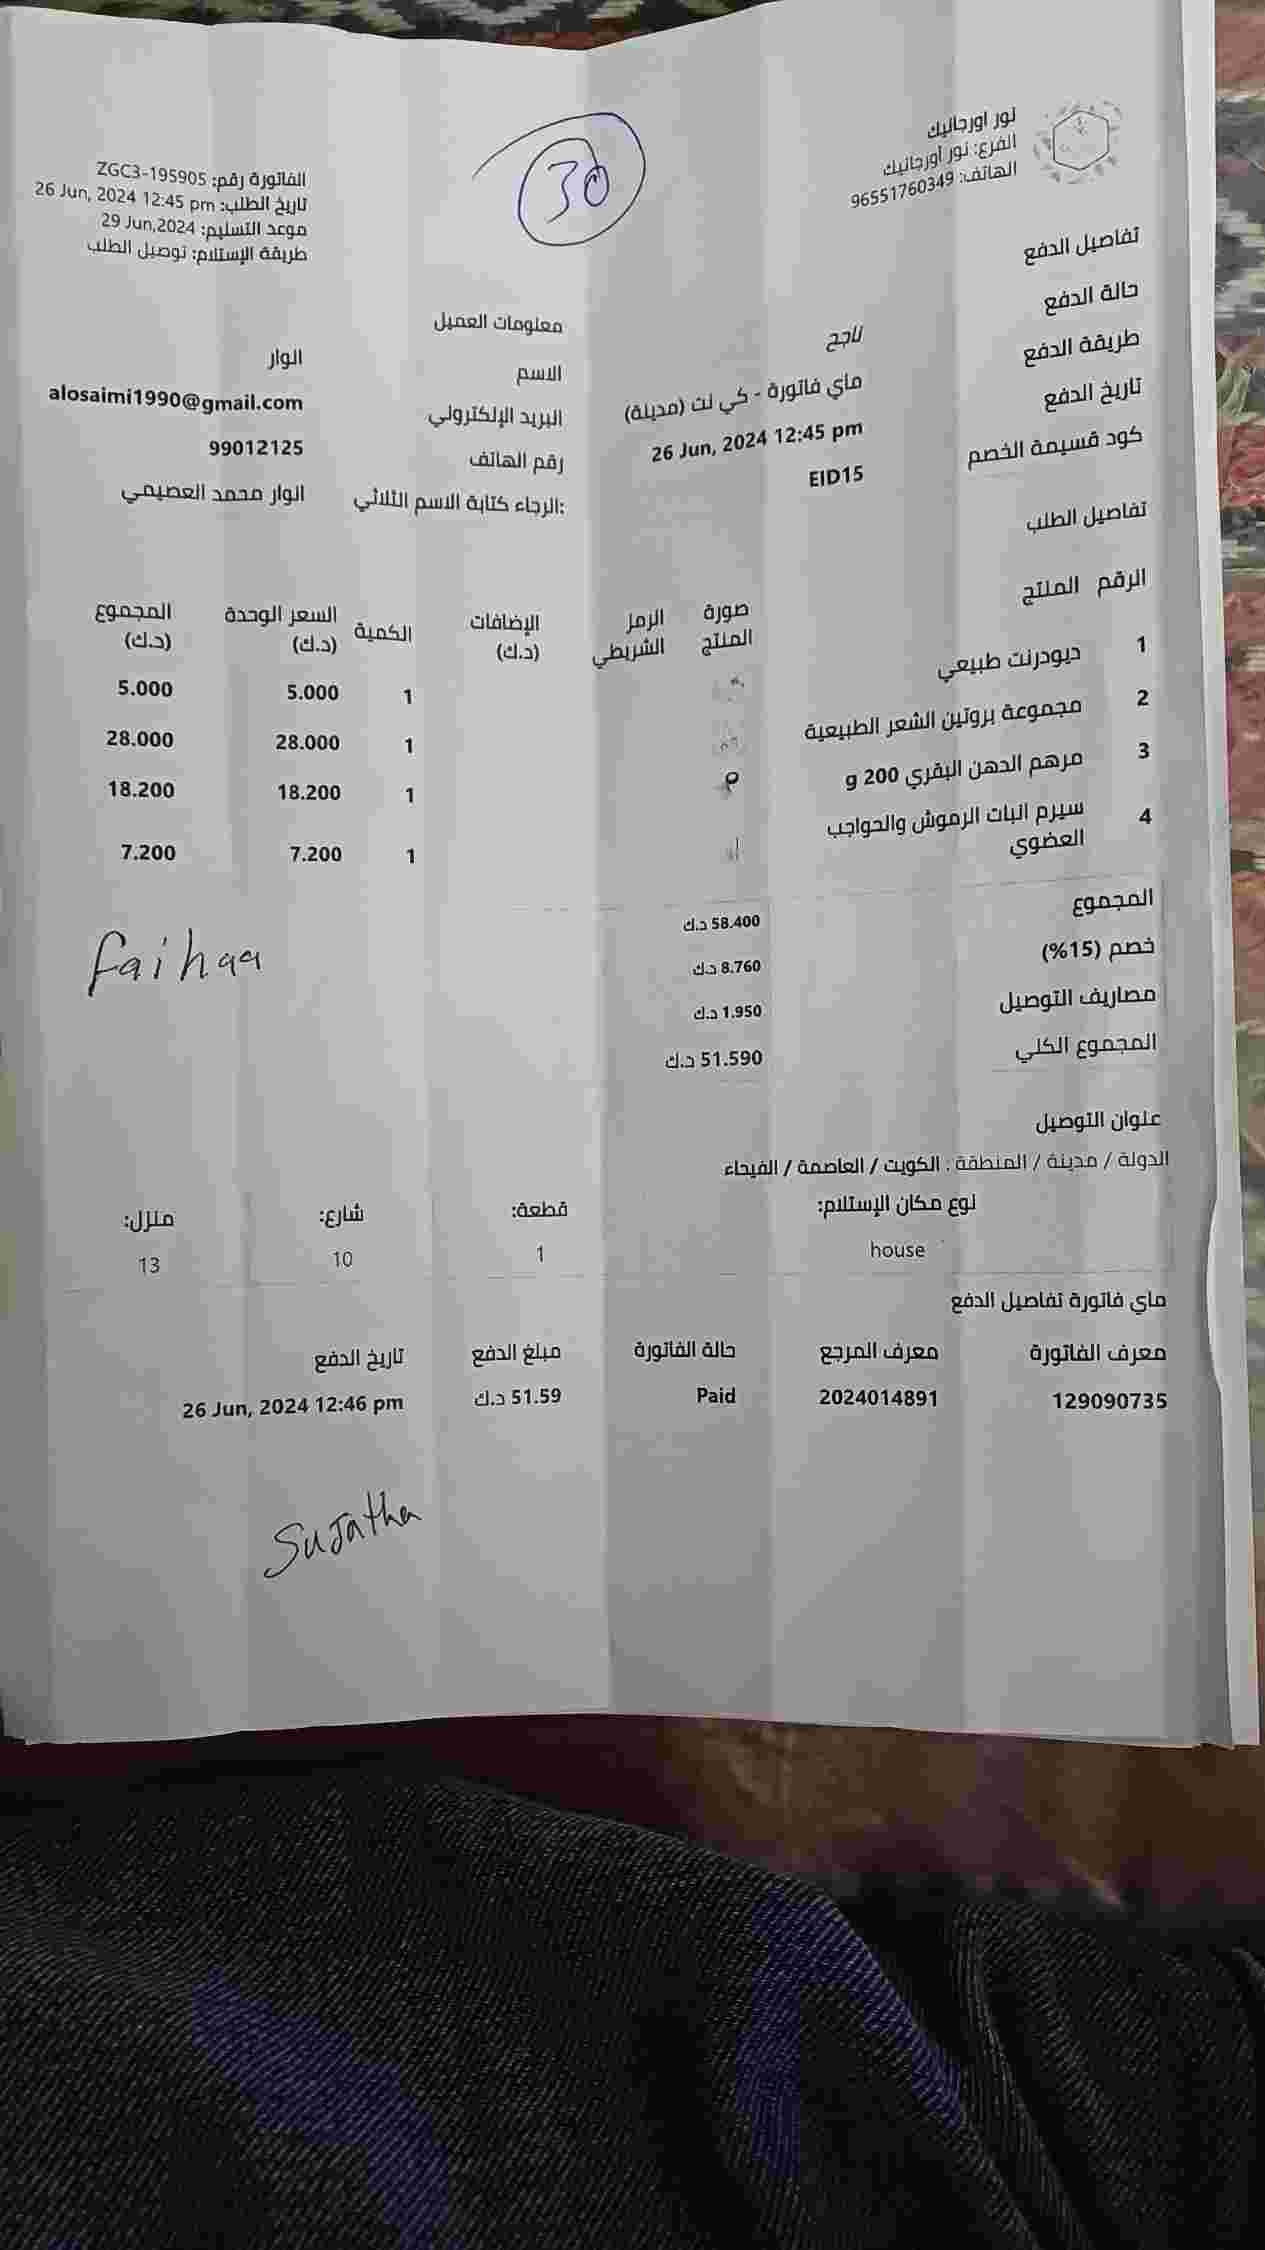 نور اورجانيك
الفرع: نور أورجانيك
الهاتف: 96551760349
30
الفاتورة رقم: ZGC3-195905
تاريخ الطلب: 26 Jun, 2024 12:45 pm
موعد التسليم: 29 Jun,2024
طريقة الإستلام: توصيل الطلب
تفاصيل الدفع
حالة الدفع ناجح
طريقة الدفع ماي فاتورة - كي نت (مدينة)
تاريخ الدفع 26 Jun, 2024 12:45 pm
كود قسيمة الخصم EID15
معلومات العميل
الاسم انوار
البريد الإلكتروني alosaimi1990@gmail.com
رقم الهاتف 99012125
الرجاء كتابة الاسم الثلاثي: انوار محمد العصيمي
تفاصيل الطلب
الرقم المنتج صورة المنتج الرمز الشريطي الإضافات (د.ك) الكمية السعر الوحدة (د.ك) المجموع (د.ك)
1 ديودرنت طبيعي 1 5.000 5.000
2 مجموعة بروتين الشعر الطبيعية 1 28.000 28.000
3 مرهم الدهن البقري 200 g 1 18.200 18.200
4 سيرم انبات الرموش والحواجب العضوي 1 7.200 7.200
المجموع 58.400 د.ك
خصم (15%) 8.760 د.ك
مصاريف التوصيل 1.950 د.ك
المجموع الكلي 51.590 د.ك
Faihaa
عنوان التوصيل
الدولة / مدينة / المنطقة : الكويت / العاصمة / الفيحاء
نوع مكان الإستلام: قطعة: شارع: منزل:
house 1 10 13
ماي فاتورة تفاصيل الدفع
معرف الفاتورة معرف المرجع حالة الفاتورة مبلغ الدفع تاريخ الدفع
129090735 2024014891 Paid 51.59 د.ك 26 Jun, 2024 12:46 pm
Sujatha